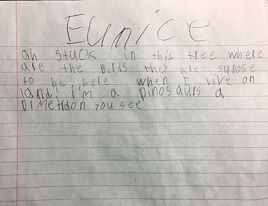 Eunice
oh stuck in this tree where
are the Birds they are supose
to be here when I live on
land! I'm a Dinosaurs a
Dimetidon you see